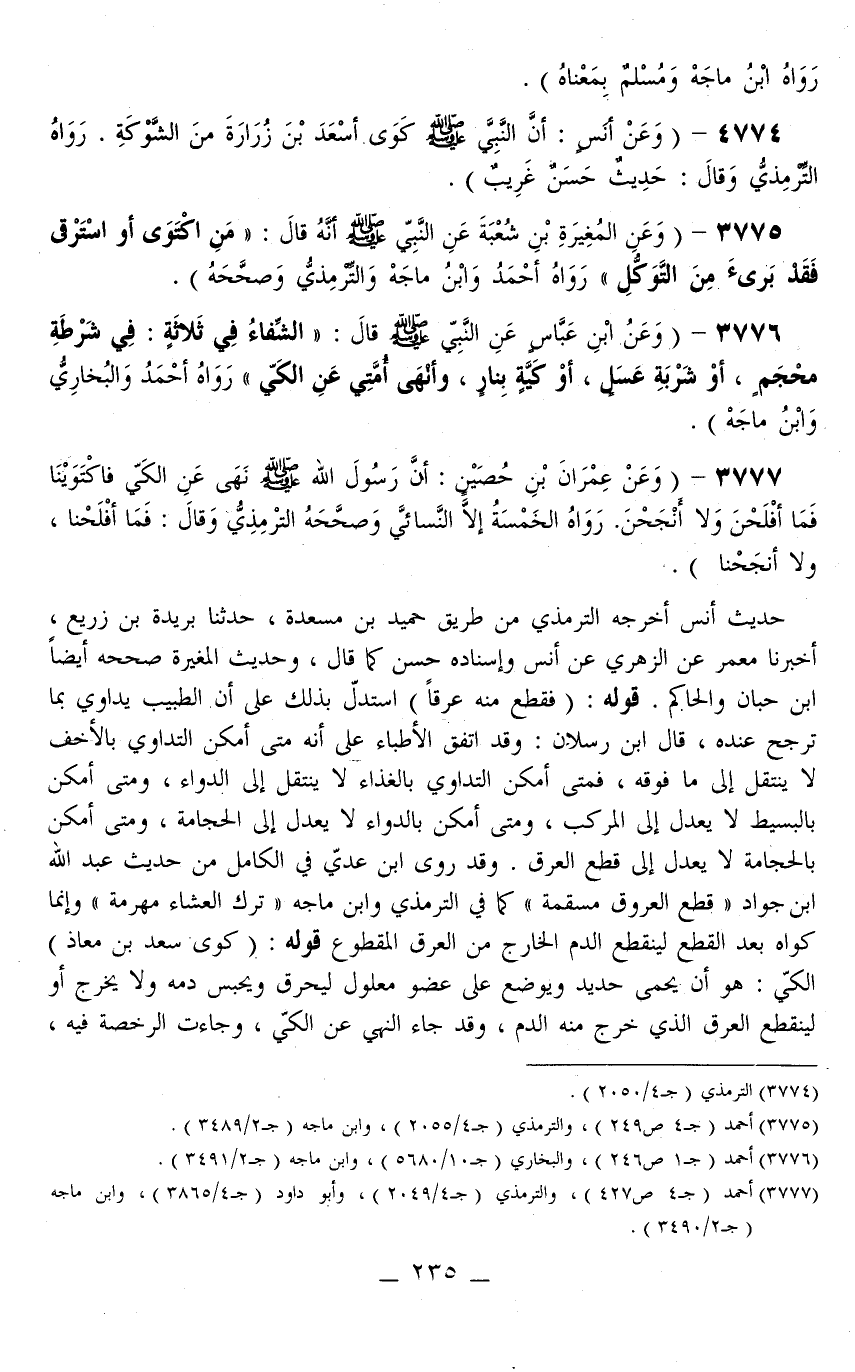 رَوَاهُ ابْنُ ماجَهْ وَمُسْلمٌ بِمَعْناهُ ) .
٤٧٧٤ – ( وَعَنْ أنَسٍ : أنَّ النَّبِيَّ ﷺ كَوَى أسْعَدَ بْنَ زُرَارَةَ منَ الشَّوْكَةِ . رَوَاهُ
التِّرْمِذيُّ وَقالَ : حَدِيثٌ حَسَنٌ غَرِيبٌ ) .
٣٧٧٥ – ( وَعَنِ المُغِيرَةِ بْنِ شُعْبَةَ عَنِ النَّبِيّ ﷺ أنَّهُ قالَ : « مَنِ اكْتَوَى أو اسْتَرْقى
فَقَدْ بَرىءَ مِنَ التَّوَكُّلِ » رَوَاهُ أحْمَدُ وَابْنُ ماجَهْ وَالتِّرْمِذيُّ وَصحَّحَهُ ) .
٣٧٧٦ – ( وَعَنُ ابْنِ عَبَّاسٍ عَنِ النَّبِيّ ﷺ قالَ : « الشِّفاءُ فِي ثَلاثَةٍ : فِي شَرْطَةِ
محْجَمٍ ، أوْ شَرْبَةِ عَسَلٍ ، أوْ كَيَّةٍ بِنارٍ ، وأنْهَى أُمَّتِي عَنِ الكَيّ » رَوَاهُ أحْمَدُ وَالبُخارِيُّ
وَابْنُ ماجَهْ ) .
٣٧٧٧ – ( وَعَنْ عِمْرَانَ بْنِ حُصَيْنٍ : أنَّ رَسُولَ الله ﷺ نَهَى عَنِ الكَيّ فاكْتَوَيْنَا
فَمَا أفْلَحْنَ وَلا أَنْجَحْنَ. رَوَاهُ الخَمْسَةُ إلاَّ النَّسائيَّ وَصحَّحَهُ الترْمِذِيُّ وَقالَ : فَمَا أفْلَحْنا ،
ولا أنجَحْنا ) .
حديث أنس أخرجه الترمذي من طريق حميد بن مسعدة ، حدثنا بريدة بن زريع ،
أخبرنا معمر عن الزهري عن أنس وإسناده حسن كما قال ، وحديث المغيرة صححه أيضاً
ابن حبان والحاكم . قوله : ( فقطع منه عرقاً ) استدلّ بذلك على أن الطبيب يداوي بما
ترجح عنده ، قال ابن رسلان : وقد اتفق الأطباء على أنه متى أمكن التداوي بالأخف
لا ينتقل إلى ما فوقه ، فمتى أمكن التداوي بالغذاء لا ينتقل إلى الدواء ، ومتى أمكن
بالبسيط لا يعدل إلى المركب ، ومتى أمكن بالدواء لا يعدل إلى الحجامة ، ومتى أمكن
بالحجامة لا يعدل إلى قطع العرق . وقد روى ابن عديّ في الكامل من حديث عبد الله
ابن جواد « قطع العروق مسقمة » كما في الترمذي وابن ماجه « ترك العشاء مهرمة » وإنما
كواه بعد القطع لينقطع الدم الخارج من العرق المقطوع قوله : ( كوى سعد بن معاذ )
الكيّ : هو أن يحمى حديد ويوضع على عضو معلول ليحرق ويحبس دمه ولا يخرج أو
لينقطع العرق الذي خرج منه الدم ، وقد جاء النهي عن الكيّ ، وجاءت الرخصة فيه ،
(٣٧٧٤) الترمذي ( جـ٢٠٥٠/٤ ) .
(٣٧٧٥) أحمد ( جـ٤ ص٢٤٩ ) ، والترمذي ( جـ٢٠٥٥/٤ ) ، وابن ماجه ( جـ٣٤٨٩/٢ ) .
(٣٧٧٦) أحمد ( جـ١ ص٢٤٦ ) ، والبخاري ( جـ٥٦٨٠/١٠ ) ، وابن ماجه ( جـ٣٤٩١/٢ ) .
(٣٧٧٧) أحمد ( جـ٤ ص٤٢٧ ) ، والترمذي ( جـ٢٠٤٩/٤ ) ، وأبو داود ( جـ٣٨٦٥/٤ ) ، وابن ماجه
( جـ٣٤٩٠/٢ ) .
— ٢٣٥ —